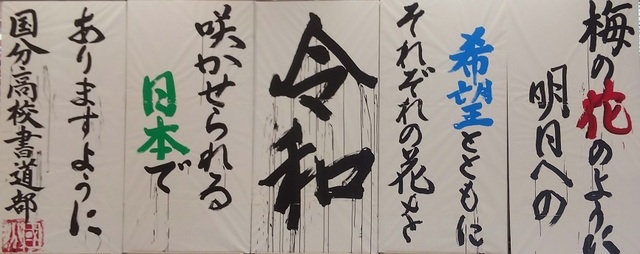 梅の花のように
明日への
希望とともに
それぞれの花を
令和
咲かせられる
日本で
ありますように
国分高校書道部